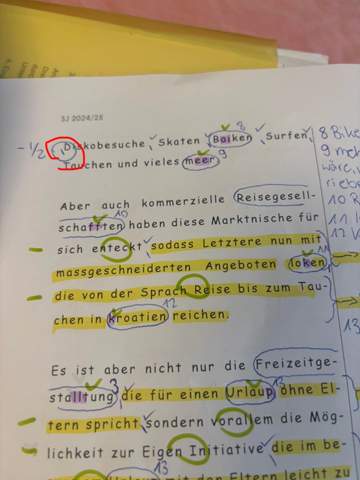 SJ 2024/25
- 1/2 Diskobesuche, Skaten, Baiken, Surfen, 8
Tauchen und vieles meer 9
Aber auch kommerzielle Reisegesell-
schafften haben diese Marktnische für 10
sich enteckt, sodass Letztere nun mit
massgeschneiderten Angeboten loken, 11
die von der Sprach Reise bis zum Tau-
chen in kroatien reichen. 12
Es ist aber nicht nur die Freizeitge-
stalltung, die für einen Urlaup ohne El- 3 13
tern spricht, sondern vorallem die Mög-
lichkeit zur Eigen Initiative, die im be-
mit den Eltern leicht zu 13
8 Bike
9 meh
10 R
11
12
13